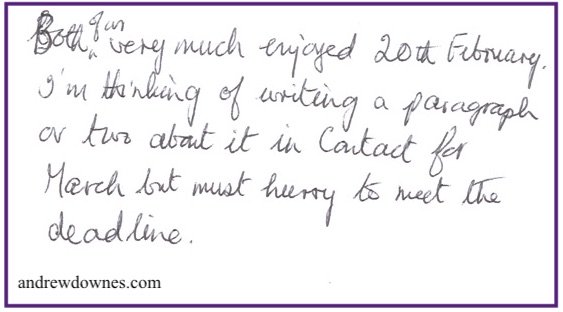 Both of us very much enjoyed 20th February.
I'm thinking of writing a paragraph
or two about it in Contact for
March but must hurry to meet the
deadline.
andrewdownes.com